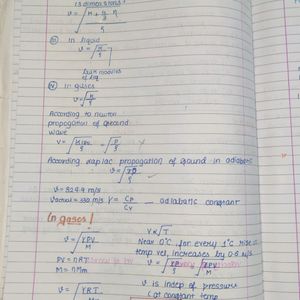 is dimensions?
v = √(K + 4/3 η / ρ)
(iii) In liquid
v = √(K/ρ)
bulk modulus
of liq.
(iv) In gases
v = √(K/ρ)
According to newton
propogation of ground
wave
v = √(Kiso/ρ) = √(P/ρ)
According laplac propogation of ground in adiabatic
v = √(γP/ρ)
v = 324.4 m/s
Vactual = 330 m/s γ = Cp/Cv adiabatic constant
In gases!
v = √(γPV/M)
PV = nRT
M = nMm
v = √(γRT
v ∝ √T
Near 0°C for every 1°C rise in
temp. vel. increases by 0.6 m/s
v = √(γP/ρ) √(γPV/M)
v is indep of pressure
(at constant temp